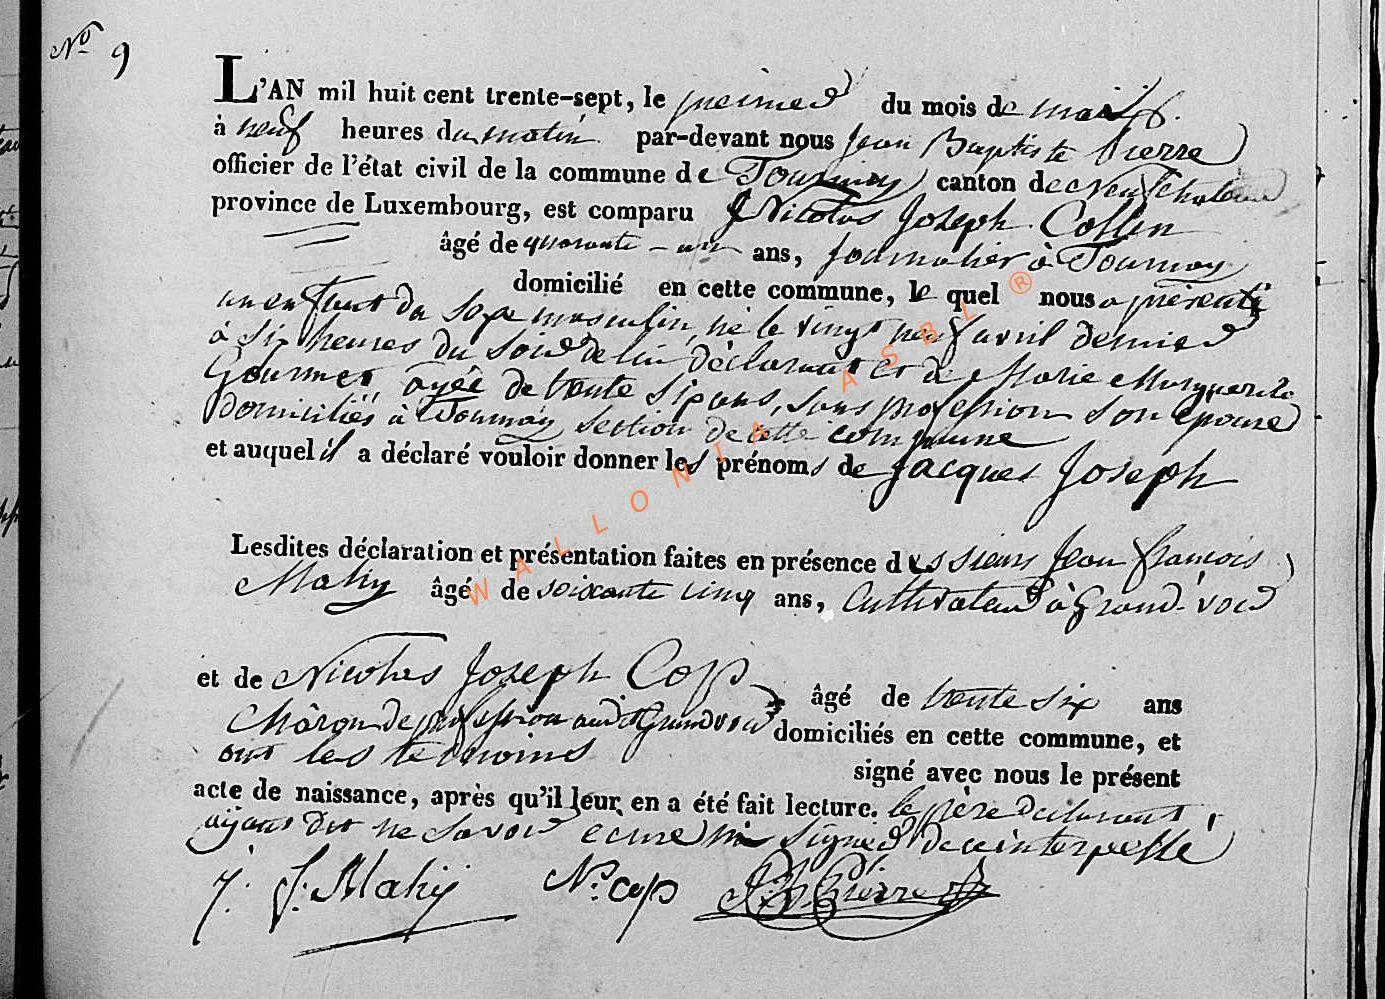 No 9
L'AN mil huit cent trente-sept, le premier du mois de mai
à neuf heures du matin par-devant nous Jean Baptiste Pierre
officier de l'état civil de la commune de Tournay canton de Neufchateau
province de Luxembourg, est comparu Nicolas Joseph Collin
âgé de quarante-un ans, journalier à Tournay
domicilié en cette commune, le quel nous a présenté
un enfant du sexe masculin, né le vingt neuf avril dernier
à six heures du soir de lui déclarant et de Marie Marguerite
Gourmet, agée de trente six ans, sans profession son épouse
domiciliés à Tournay section de cette commune
et auquel il a déclaré vouloir donner les prénoms de Jacques Joseph
Lesdites déclaration et présentation faites en présence des sieurs Jean françois
Mahy âgé de soixante cinq ans, Cultivateur à Grand-voir
et de Nicolas Joseph Cop âgé de trente six ans
Charon de profession audit Grandvoir domiciliés en cette commune, et
ont les témoins signé avec nous le présent
acte de naissance, après qu'il leur en a été fait lecture. le père déclarant
ayant dit ne savoir écrire ni signer de ce interpellé
J. f. Mahy Ns. cop J. B. Pierre
WALLONIA ASBL ®